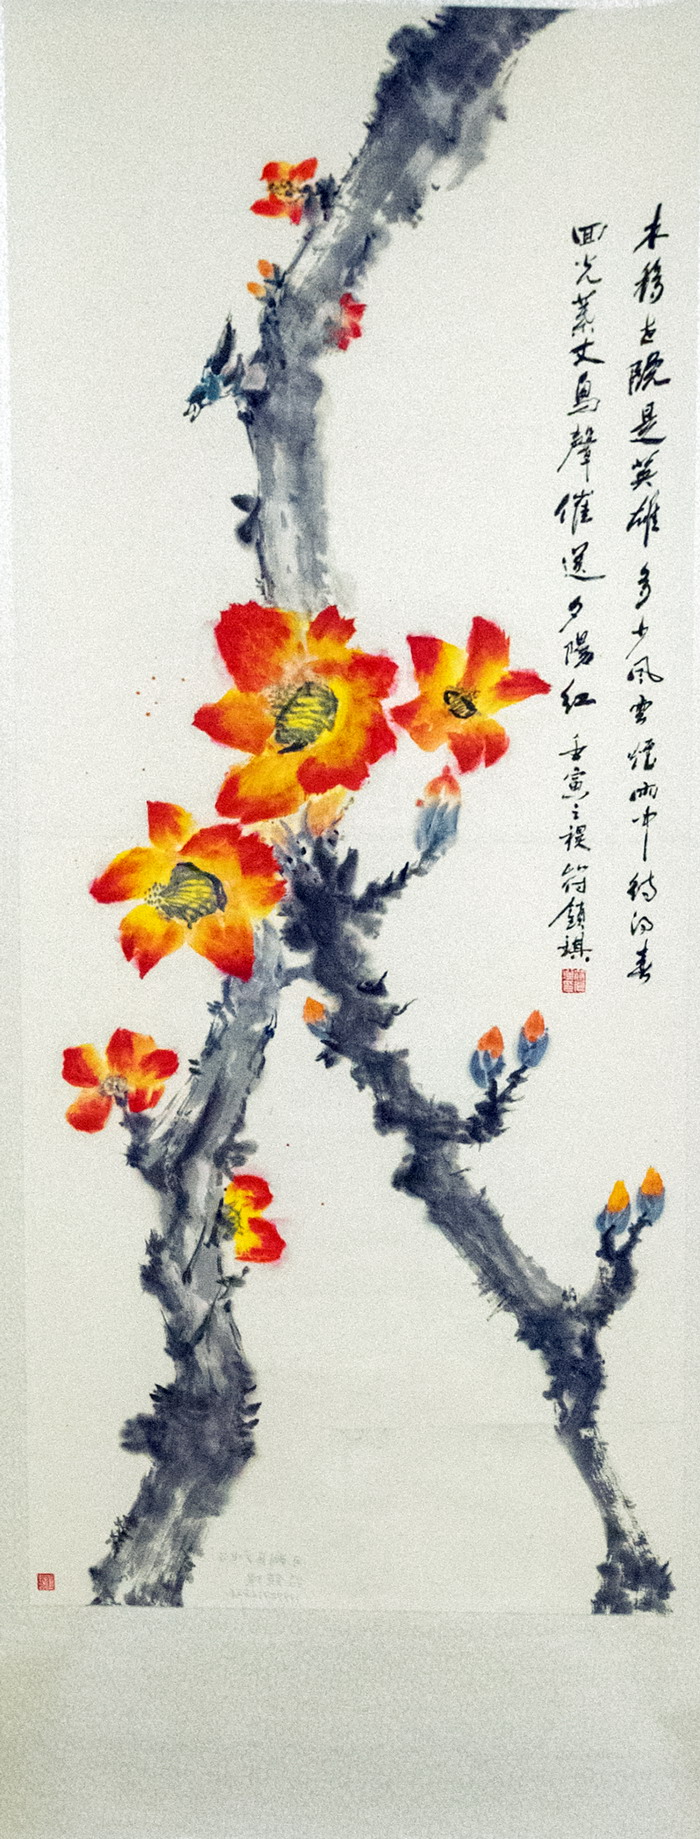 木棉院是英雄多少風雲煙雨中待得春
回光萬丈鳥聲催送夕陽紅壬寅之符鎮祺